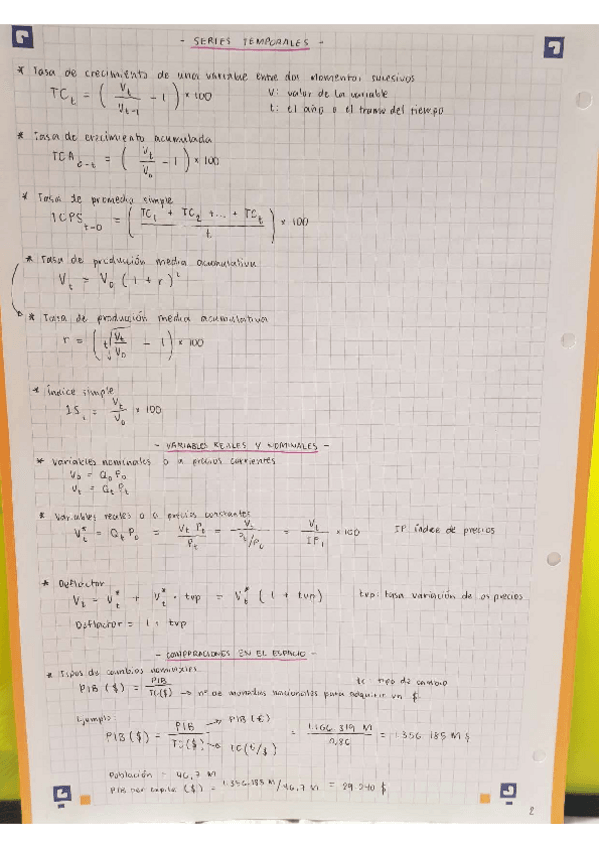 - SERIES TEMPORALES -
* Tasa de crecimiento de una variable entre dos momentos sucesivos
TC_t = (V_t / V_t-1 - 1) × 100
V: valor de la variable
t: el año o el tramo del tiempo
* Tasa de crecimiento acumulada
TCA_0-t = (V_t / V_0 - 1) × 100
* Tasa de promedio simple
TCPS_t-0 = (TC_1 + TC_2 + ... + TC_t / t) × 100
* Tasa de producción media acumulativa
V_t = V_0 (1 + r)^t
* Tasa de producción media acumulativa
r = (t√V_t / V_0 - 1) × 100
* Índice simple
IS_i = V_t / V_0 × 100
- VARIABLES REALES Y NOMINALES -
* Variables nominales o a precios corrientes
V_0 = Q_0 P_0
V_t = Q_t P_t
* Variables reales o a precios constantes
V_t^* = Q_t P_0 = V_t P_0 / P_t = V_t / P_t/P_0 = V_t / IP_i × 100
IP índice de precios
* Deflactor
V_t = V_t^* + V_t^* · tvp = V_t^* (1 + tvp)
tvp: tasa variación de los precios
Deflactor = 1 + tvp
- COMPARACIONES EN EL ESPACIO -
* Tipos de cambios nominales
tc: tipo de cambio
PIB ($) = PIB / TC($) → nº de monedas nacionales para adquirir un $
Ejemplo:
PIB ($) = PIB / TC($) = 1.166.319 M / 0,86 = 1.356.185 M $
→ PIB (€)
→ TC (€/$)
Población = 46,7 M
PIB per capita ($) = 1.356.185 M / 46,7 M = 29.040 $
2